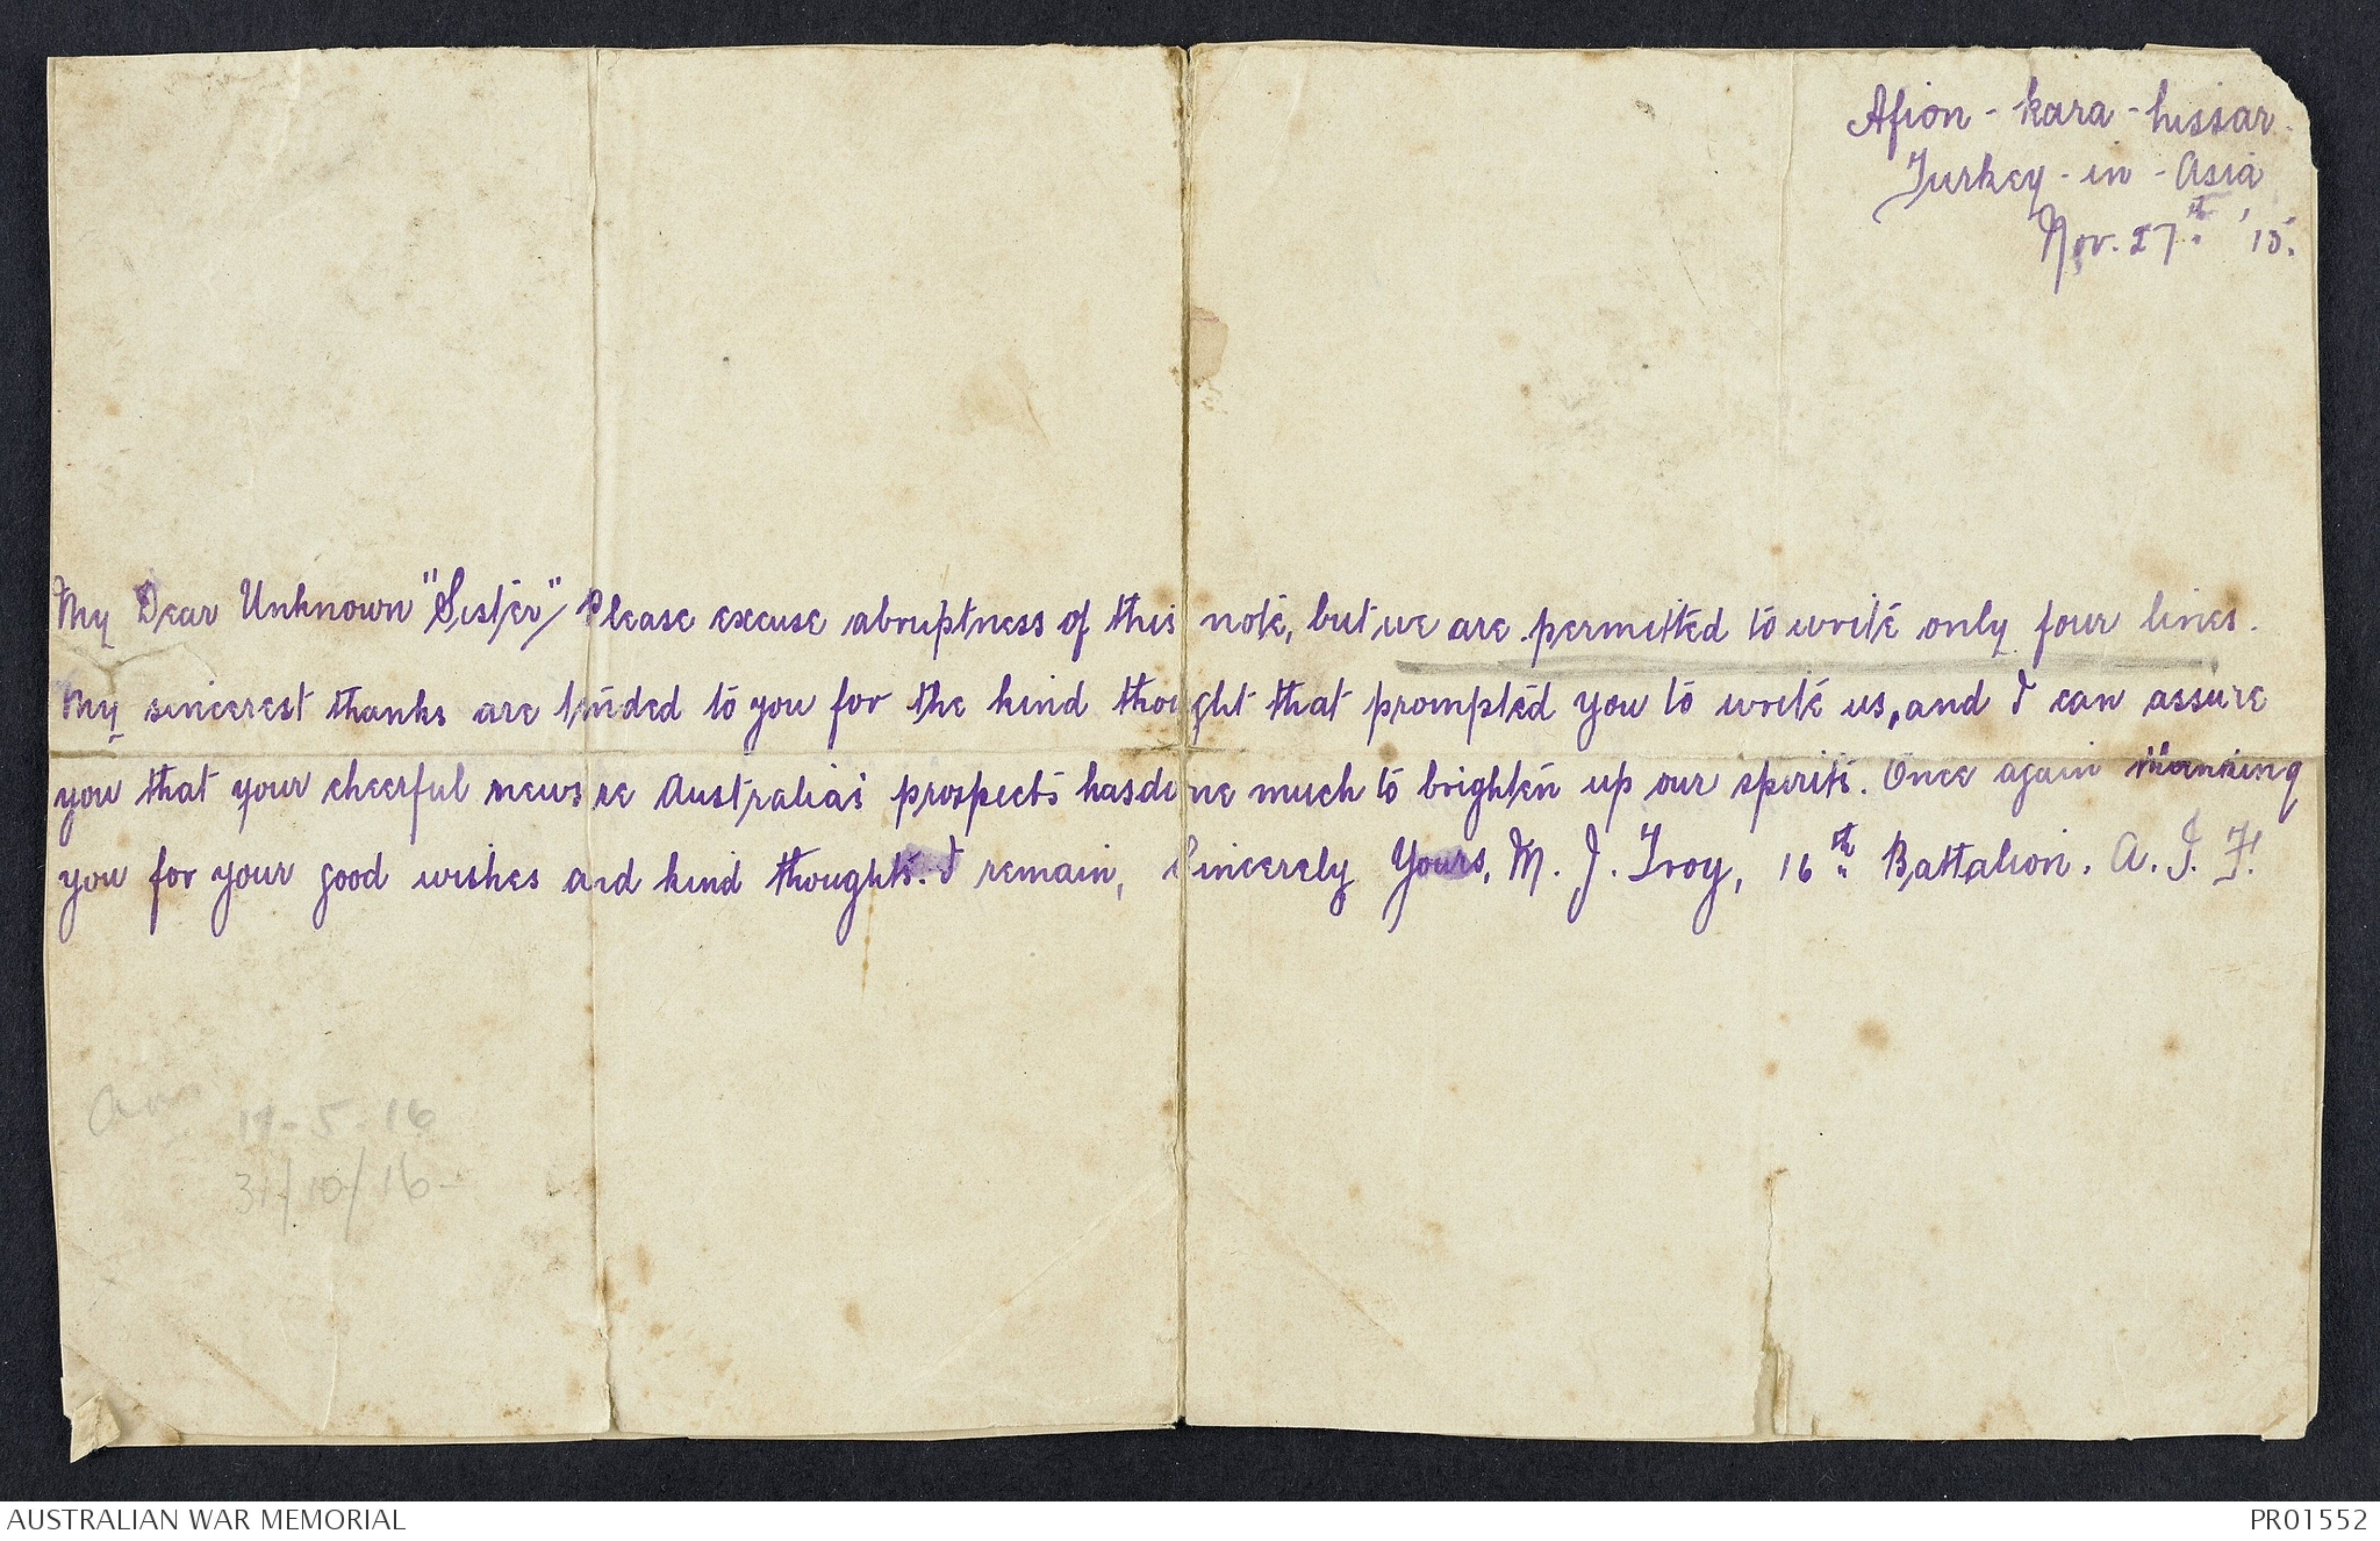 Afion - kara - hissar.
Turkey - in - Asia
Nov. 27th '15.
My Dear Unknown "Sister", Please excuse abruptness of this note, but we are permitted to write only four lines.
My sincerest thanks are tended to you for the kind thought that prompted you to write us, and I can assure
you that your cheerful news re Australia's prospects has done much to brighten up our spirits. Once again thanking
you for your good wishes and kind thoughts. I remain, Sincerely Yours, M. J. Troy, 16th Battalion. A. I. F.
17-5-16
31/10/16-
AUSTRALIAN WAR MEMORIAL
PR01552